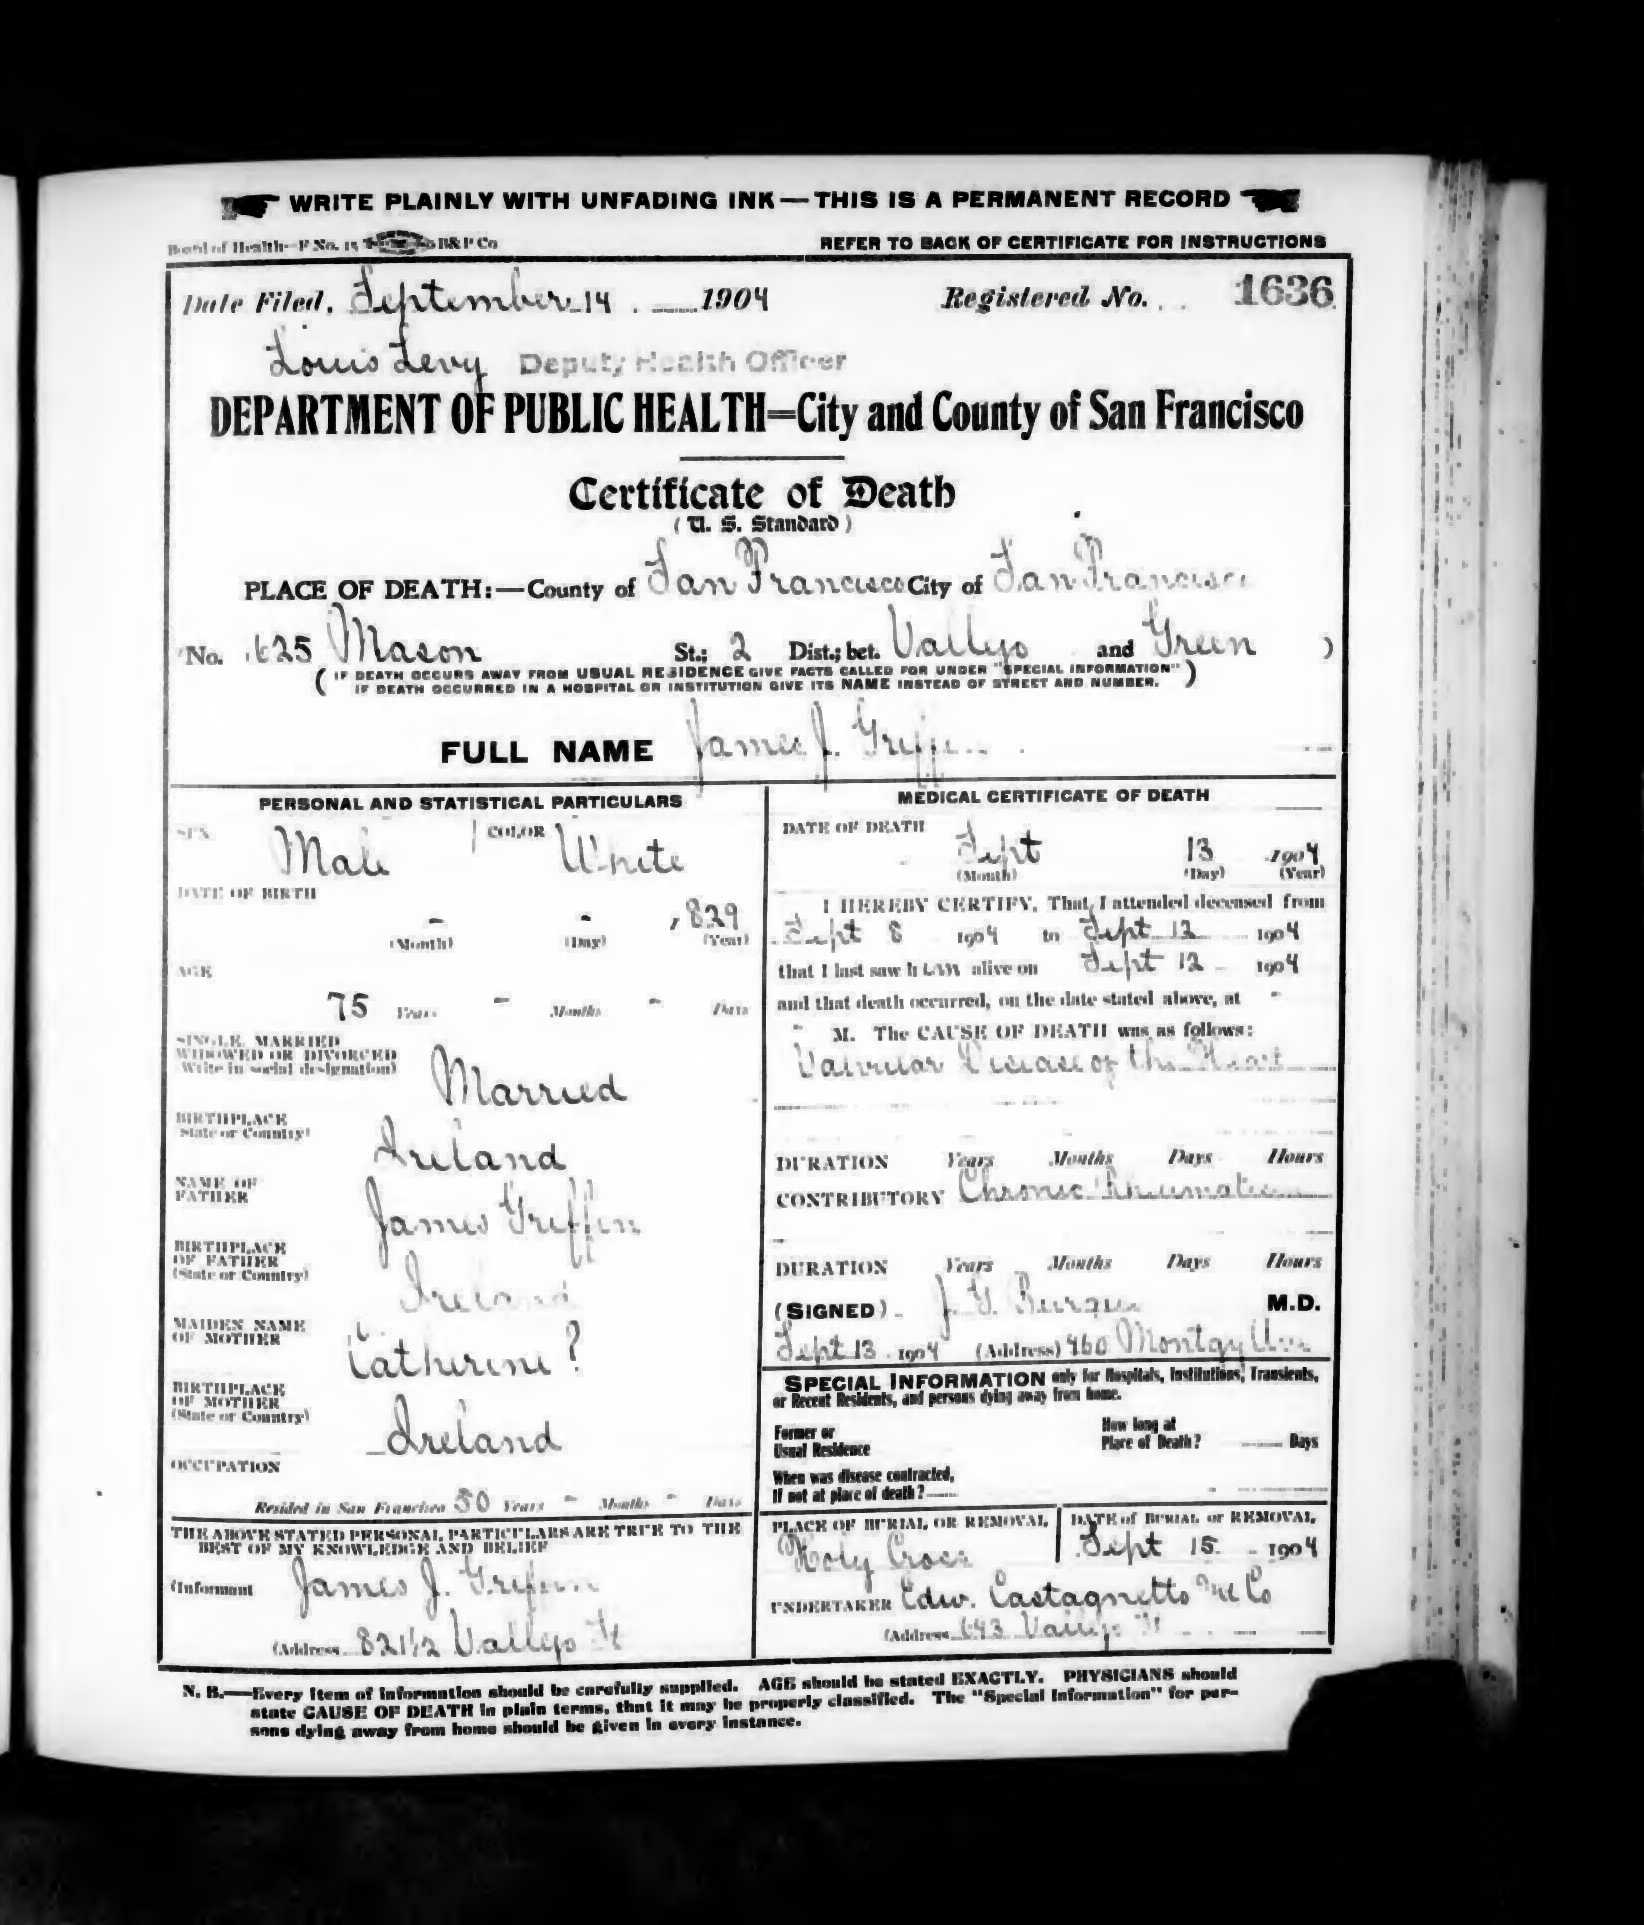 WRITE PLAINLY WITH UNFADING INK — THIS IS A PERMANENT RECORD
Board of Health—F No. 15 B&P Co
REFER TO BACK OF CERTIFICATE FOR INSTRUCTIONS
Date Filed, September 14 1904 Registered No. 1636
Louis Levy Deputy Health Officer
DEPARTMENT OF PUBLIC HEALTH=City and County of San Francisco
Certificate of Death
(U. S. Standard)
PLACE OF DEATH:—County of San Francisco City of San Francisco
No. 1625 Mason St.; 2 Dist.; bet. Vallejo and Green )
( IF DEATH OCCURS AWAY FROM USUAL RESIDENCE GIVE FACTS CALLED FOR UNDER "SPECIAL INFORMATION" )
IF DEATH OCCURRED IN A HOSPITAL OR INSTITUTION GIVE ITS NAME INSTEAD OF STREET AND NUMBER.
FULL NAME James J. Griffin
PERSONAL AND STATISTICAL PARTICULARS
SEX Male COLOR White
DATE OF BIRTH
- - 1829
(Month) (Day) (Year)
AGE
75 Years - Months - Days
SINGLE, MARRIED
WIDOWED OR DIVORCED
(Write in social designation)
Married
BIRTHPLACE
(State or Country)
Ireland
NAME OF
FATHER
James Griffin
BIRTHPLACE
OF FATHER
(State or Country)
Ireland
MAIDEN NAME
OF MOTHER
Catherine ?
BIRTHPLACE
OF MOTHER
(State or Country)
Ireland
OCCUPATION
Resided in San Francisco 50 Years - Months - Days
THE ABOVE STATED PERSONAL PARTICULARS ARE TRUE TO THE
BEST OF MY KNOWLEDGE AND BELIEF
(Informant James J. Griffin
(Address 821 1/2 Vallejo St
MEDICAL CERTIFICATE OF DEATH
DATE OF DEATH
Sept 13 1904
(Month) (Day) (Year)
I HEREBY CERTIFY, That I attended deceased from
Sept 8 1904 to Sept 12 1904
that I last saw him alive on Sept 12 1904
and that death occurred, on the date stated above, at -
- M. The CAUSE OF DEATH was as follows:
Valvular Disease of the Heart
DURATION Years Months Days Hours
CONTRIBUTORY Chronic Rheumatism
DURATION Years Months Days Hours
(SIGNED) J. G. M.D.
Sept 13 1904 (Address) 460 Montgy Ave
SPECIAL INFORMATION only for Hospitals, Institutions, Transients,
or Recent Residents, and persons dying away from home.
Former or
Usual Residence
How long at
Place of Death? Days
When was disease contracted,
If not at place of death?
PLACE OF BURIAL OR REMOVAL
Holy Cross
DATE of BURIAL or REMOVAL
Sept 15 1904
UNDERTAKER Edw. Castagnetto Co
(Address 643 Vallejo St
N. B.—Every item of information should be carefully supplied. AGE should be stated EXACTLY. PHYSICIANS should
state CAUSE OF DEATH in plain terms, that it may be properly classified. The "Special Information" for per-
sons dying away from home should be given in every instance.